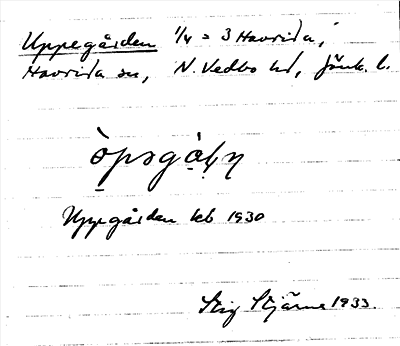 Uppegården 1/4 = 3 Havrida,
Havrida sn, N. Vedbo hd, Jönk. l.
Uppegården kb 1930
Stig Stjärne 1933.